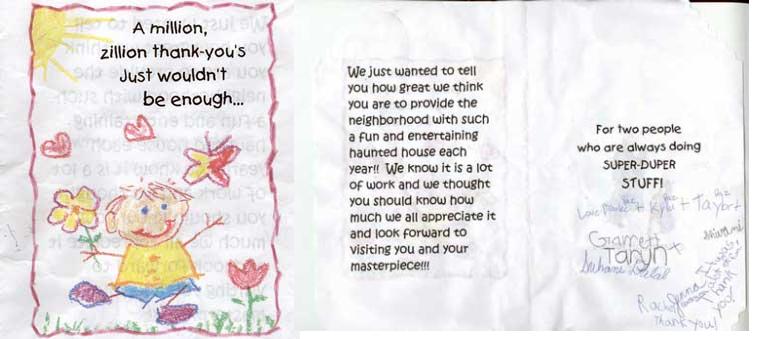 A million,
zillion thank-you's
Just wouldn't
be enough...
We just wanted to tell
you how great we think
you are to provide the
neighborhood with such
a fun and entertaining
haunted house each
year!! We know it is a lot
of work and we thought
you should know how
much we all appreciate it
and look forward to
visiting you and your
masterpiece!!!
For two people
who are always doing
SUPER-DUPER
STUFF!
Love
+ Kyle + Taylor +
Garrett +
Taryn
Rachel
Jenna
Thank you!
Thank
you!